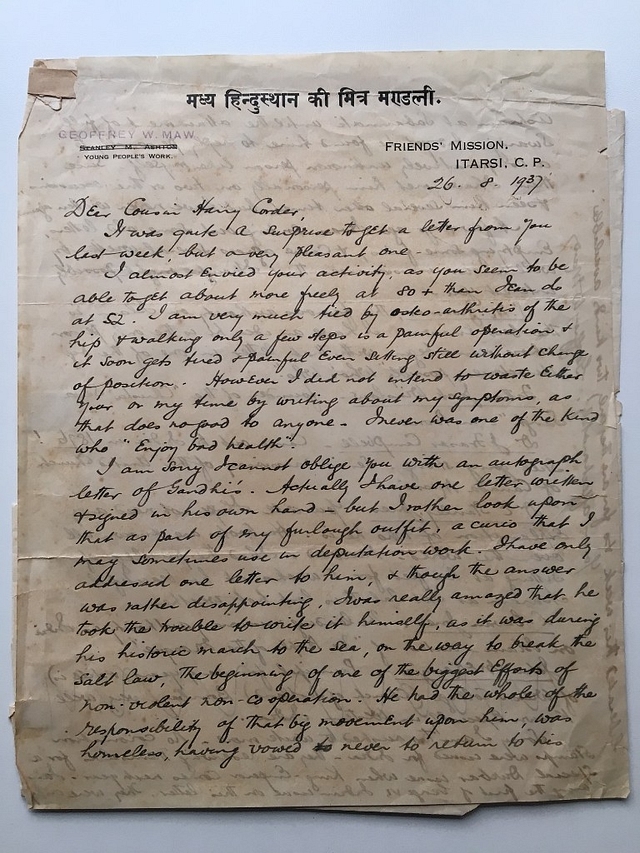 मध्य हिन्दुस्थान की मित्र मण्डली.
GEOFFREY W. MAW
STANLEY M. ASHTON
YOUNG PEOPLE'S WORK.
FRIENDS' MISSION,
ITARSI, C. P.
26. 8. 1937
Dear Cousin Harry Corder,
It was quite a surprise to get a letter from you
last week, but a very pleasant one.
I almost envied your activity, as you seem to be
able to get about more freely at 80 + than I can do
at 52. I am very much tied by osteo-arthritis of the
hip & walking only a few steps is a painful operation &
it soon gets tired & painful even sitting still without change
of position. However I did not intend to waste either
your or my time by writing about my symptoms, as
that does no good to anyone. I never was one of the kind
who "Enjoy bad health".
I am sorry I cannot oblige you with an autograph
letter of Gandhi's. Actually I have one letter written
& signed in his own hand – but I rather look upon
that as part of my furlough outfit, a curio that I
may sometimes use in deputation work. I have only
addressed one letter to him, & though the answer
was rather disappointing, I was really amazed that he
took the trouble to write it himself, as it was during
his historic march to the sea, on the way to break the
salt law, the beginning of one of the biggest efforts of
non-violent non-cooperation. He had the whole of the
responsibility of that big movement upon him, was
homeless, having vowed to never to return to his